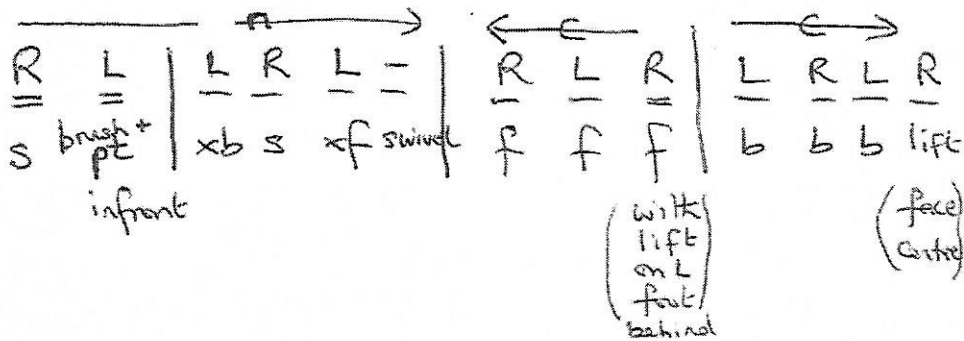 R L | L R L - | R L R | L R L R
s brush + pt | xb s xf swivel | f f f | b b b lift
infront
(with lift on L foot behind) (face centre)